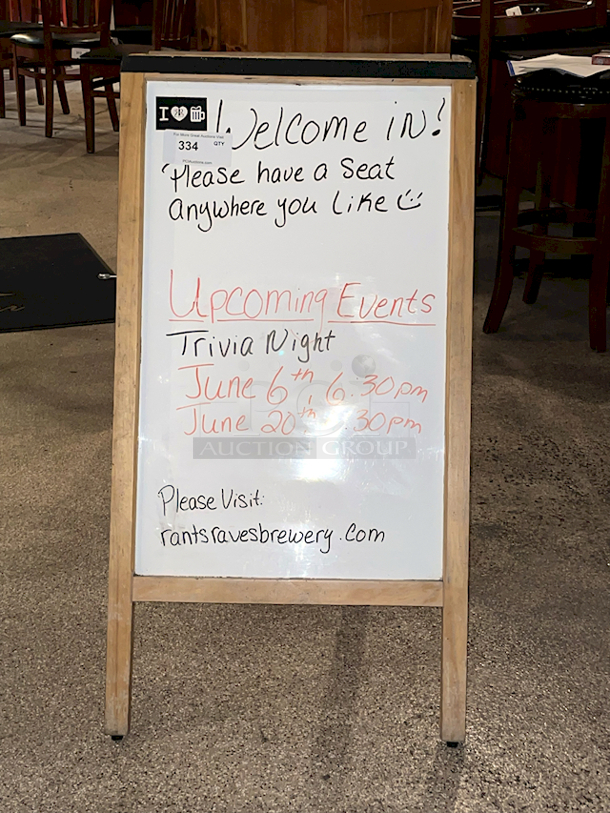 I
Welcome iN!
334 QTY
Please have a Seat
anywhere you Like
Upcoming Events
Trivia Night
June 6th, 6:30pm
June 20th, :30pm
AUCTION GROUP
Please Visit:
rantsravesbrewery.com